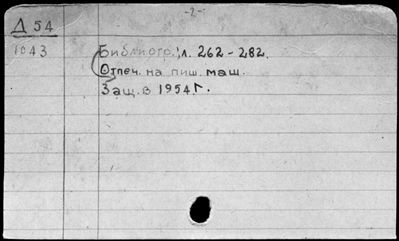 -2-
Д 54
1043
Библиогр.: л. 262-282.
Отпеч. на пиш. маш.
Защ. в 1954 г.